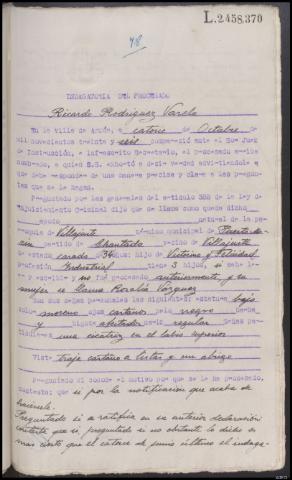 L.2458,370
48
INDAGATORIA DEL PROCESADO
Ricardo Rodriguez Varela
En la villa de a catorce de Octubre de
mil novecientos treinta y seis compareció ante el Sr Juez
de Instrucción, e infrascrito Secretario, el procesado arriba
nombrado, a quien S.S. exhortó a decir verdad advirtiendole
que debe responder de una manera precisa y clara a las pregun-
tas que se le hagan.
Preguntado por las generales del artículo 388 de la ley de
Enjuiciamiento Criminal dijo que se llama como queda dicho
natural de la pa-
rroquia de Villajuste término municipal de
partido de Chantada vecino de Villajuste
de estado casado 34 años hijo de Victorino y Felicidad
profesión Industrial tiene 3 hijos, si sabe le-
er y escribir y no fue procesado anteriormente y su
mujer se llama Rosalia Vázquez
Son sus señas personales las siguientes: estatura baja
moreno ojos castaños pelo negro barba
y bigote afeitados regular
una cicatriz en el labio superior
Viste traje castaño a listas y un abrigo
Preguntado si conoce el motivo por que se le ha procesado,
contesta: que si por la notificacion que acaba de
hacersele.
Preguntado si se ratifica en su anterior declaración
contesta que si, preguntado si no obstante lo dicho es
mas cierto que el catorce de junio último el indaga-